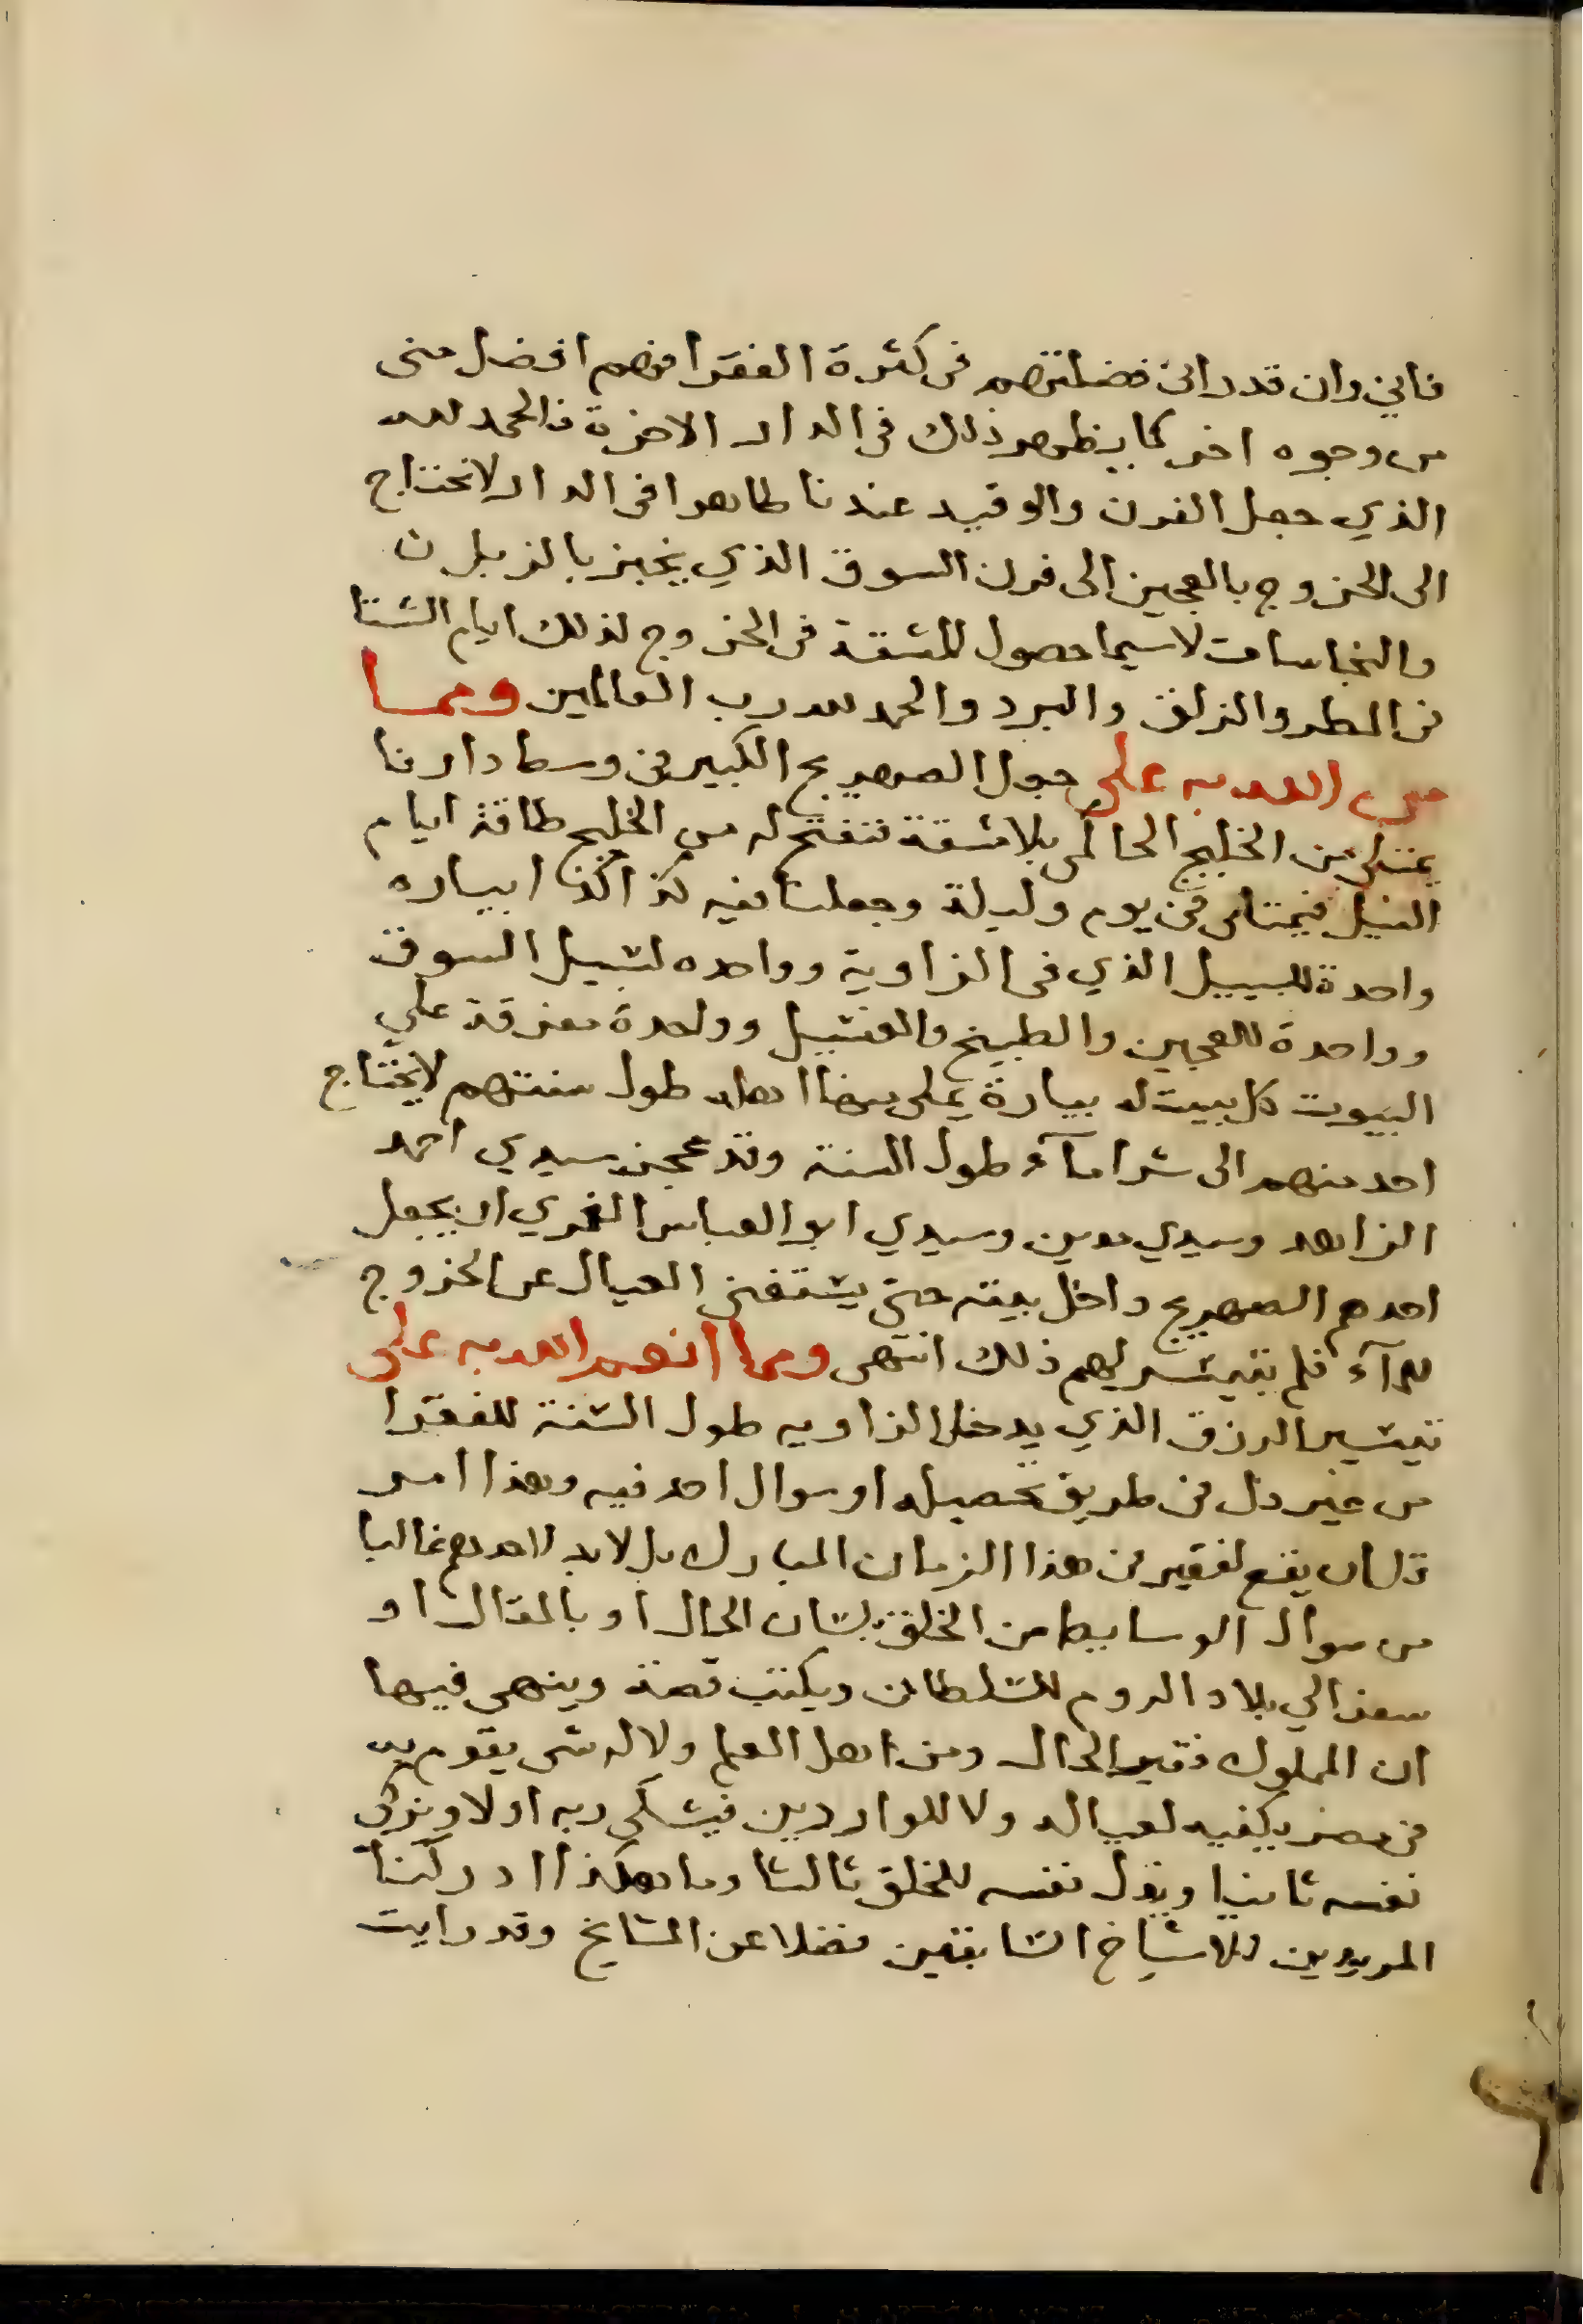 فاني وان قدر اني فضلتهم في كثرة الفقرا فهم افضل مني
من وجوه اخر كما يظهر ذلك في الدار الاخرة فالحمد لله
الذي جعل الفرن والوقيد عندنا طاهرا في الدار لا نحتاج
الى الخروج بالعجين الى فرن السوق الذي يخبز بالزبل
والنجاسات لاسيما حصول المشقة في الخروج لذلك ايام الشتا
في المطر والزلق والبرد والحمد لله رب العالمين ومما
من الله به علي جعل الصهريج الكبير في وسط دارنا
يمتلي من الخليج الحاكمي بلا مشقة تنفتح له من الخليج طاقة ايام
النيل فيمتلى في يوم وليلة وجعلنا فيه كذا كذا بياره
واحدة للسبيل الذي في الزاوية وواحده لسبيل السوق
وواحدة للعجين والطبيخ والغسيل وواحدة مفرقة علي
البيوت كل بيت له بيارة يملى منها اهله طول سنتهم لا يحتاج
احد منهم الى شرا مآء طول السنة وقد عجز سيدي احمد
الزاهد وسيدي مدين وسيدي ابو العباس الغمري ان يجعل
احدهم الصهريج داخل بيته حتى يستغني العيال عن الخروج
للمآء فلم يتيسر لهم ذلك انتهى ومما انعم الله به علي
تيسير الرزق الذي يدخل الزاويه طول السنة للفقرا
من غير ذل في طريق تحصيله او سوال احد فيه وهذا امر
قل ان يقع لفقير في هذا الزمان المبارك بل لا بد لاحدهم غالبا
من سوال الوسايط من الخلق بلسان الحال او بالمقال او
سفر الي بلاد الروم للسلطان ويكتب قصة وينهي فيها
ان المملوك فقير الحال ومن اهل العلم ولا له شي يقوم به
في مصر يكفيه لعياله ولا للواردين فيشكي ربه اولا ويزكي
نفسه ثانيا ويذل نفسه للخلق ثالثا وما هكذا ادركنا
المريدين للاشياخ السابقين فضلا عن المشايخ وقد رايت